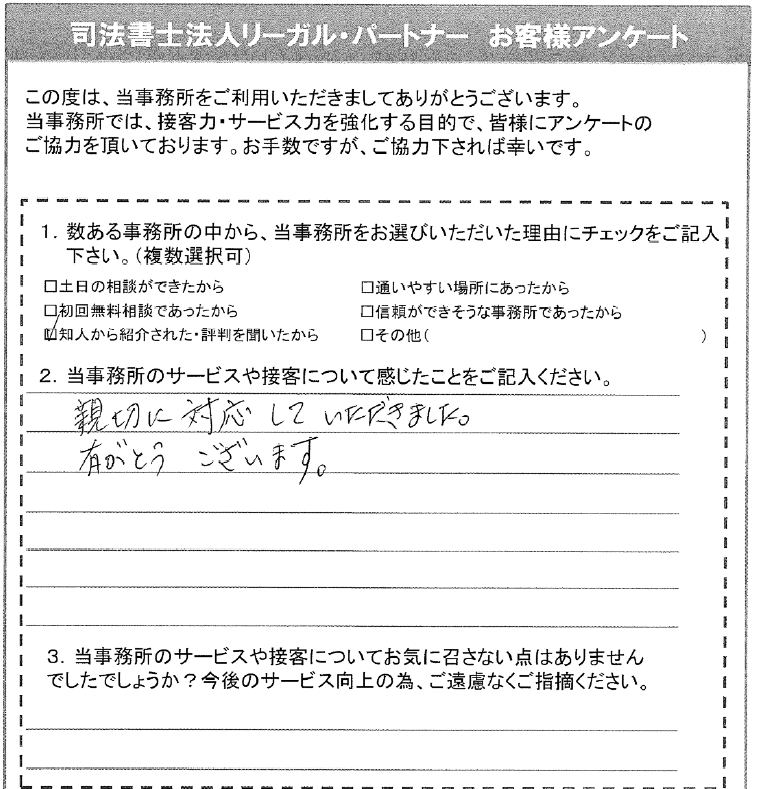 司法書士法人リーガル・パートナー お客様アンケート
この度は、当事務所をご利用いただきましてありがとうございます。
当事務所では、接客力・サービス力を強化する目的で、皆様にアンケートの
ご協力を頂いております。お手数ですが、ご協力下されば幸いです。
1. 数ある事務所の中から、当事務所をお選びいただいた理由にチェックをご記入
下さい。(複数選択可)
□土日の相談ができたから □通いやすい場所にあったから
□初回無料相談であったから □信頼ができそうな事務所であったから
☑知人から紹介された・評判を聞いたから □その他( )
2. 当事務所のサービスや接客について感じたことをご記入ください。
親切に対応していただきました。
有がとうございます。
3. 当事務所のサービスや接客についてお気に召さない点はありません
でしたでしょうか?今後のサービス向上の為、ご遠慮なくご指摘ください。